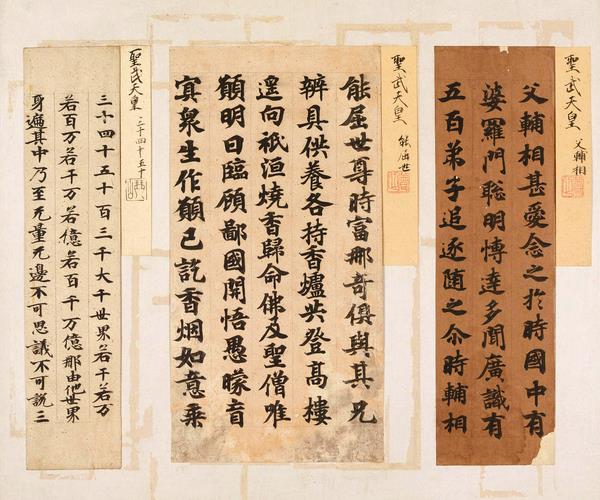 聖武天皇 父輔相
父輔相甚愛念之於時國中有
婆羅門聡明博達多聞廣識有
五百弟子追逐随之尒時輔相
聖武天皇 能屈世
能屈世尊時富那奇與其兄
辨具供養各持香爐共登高樓
遥向祇洹燒香歸命佛及聖僧唯
願明日臨顧鄙國開悟愚朦盲
冥衆生作願已訖香烟如意乗
聖武天皇 三十四十五十
三十四十五十百三千大千世界若千若万
若百万若千万若億若百千万億那由他世界
身遍其中乃至无量无邊不可思議不可說三